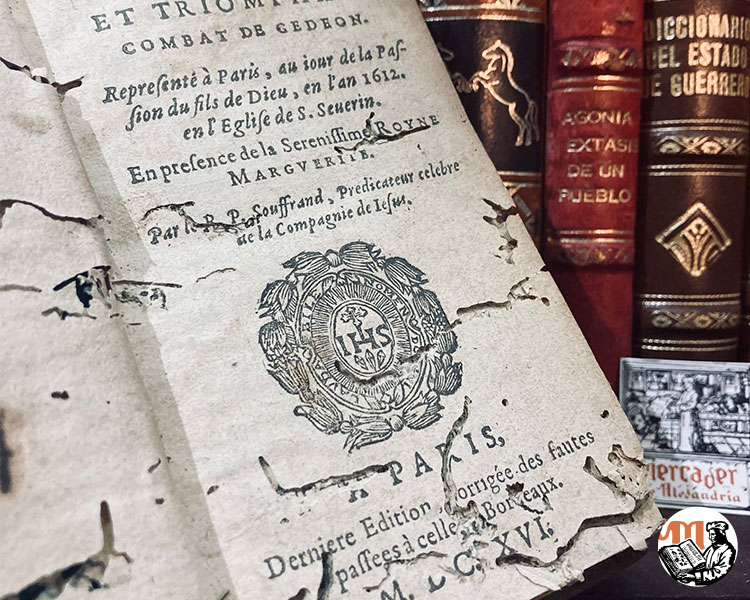 ET
COMBAT DE GEDEON.
Repreſenté à Paris, au iour de la Paſ-
ſion du fils de Dieu, en l'an 1612.
en l'Egliſe de S. Seuerin.
En preſence de la Sereniſſime ROYNE
MARGVERITE.
Par le R. P. Souffrand, Predicateur celebre
de la Compagnie de Ieſus.
IHS
A PARIS,
Derniere Edition, corrigée des fautes
paſſees à celle Bordeaux.
M. DC. XVI.
AGONIA
EXTASIS
DE UN
PUEBLO
DICCIONARIO
DEL ESTADO
DE GUERRERO
Mercader
Alejandria
M